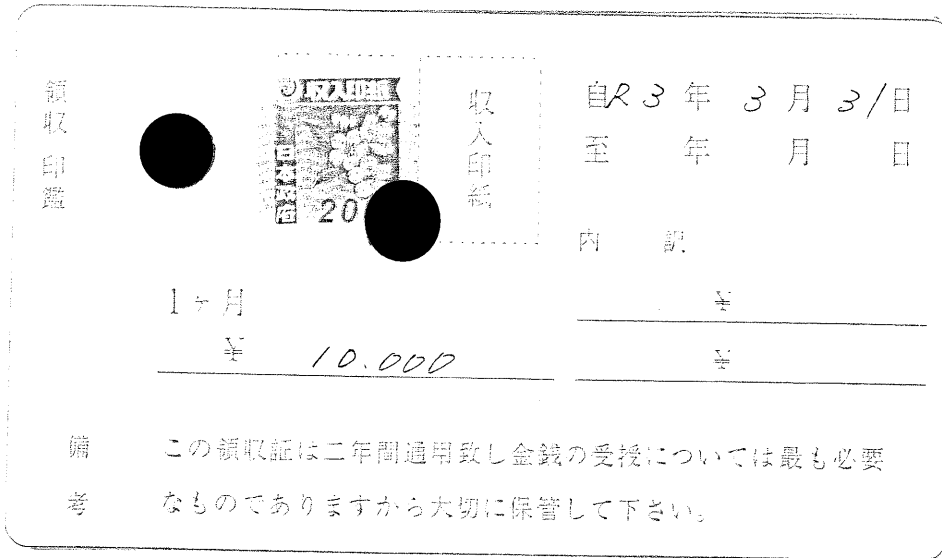 領収印鑑
収入印紙
日本政府
20
収入印紙
自R3年3月31日
至 年 月 日
内 訳
1ヶ月
¥ 10.000
¥
¥
備考
この領収証は二年間通用致し金銭の受授については最も必要
なものでありますから大切に保管して下さい。